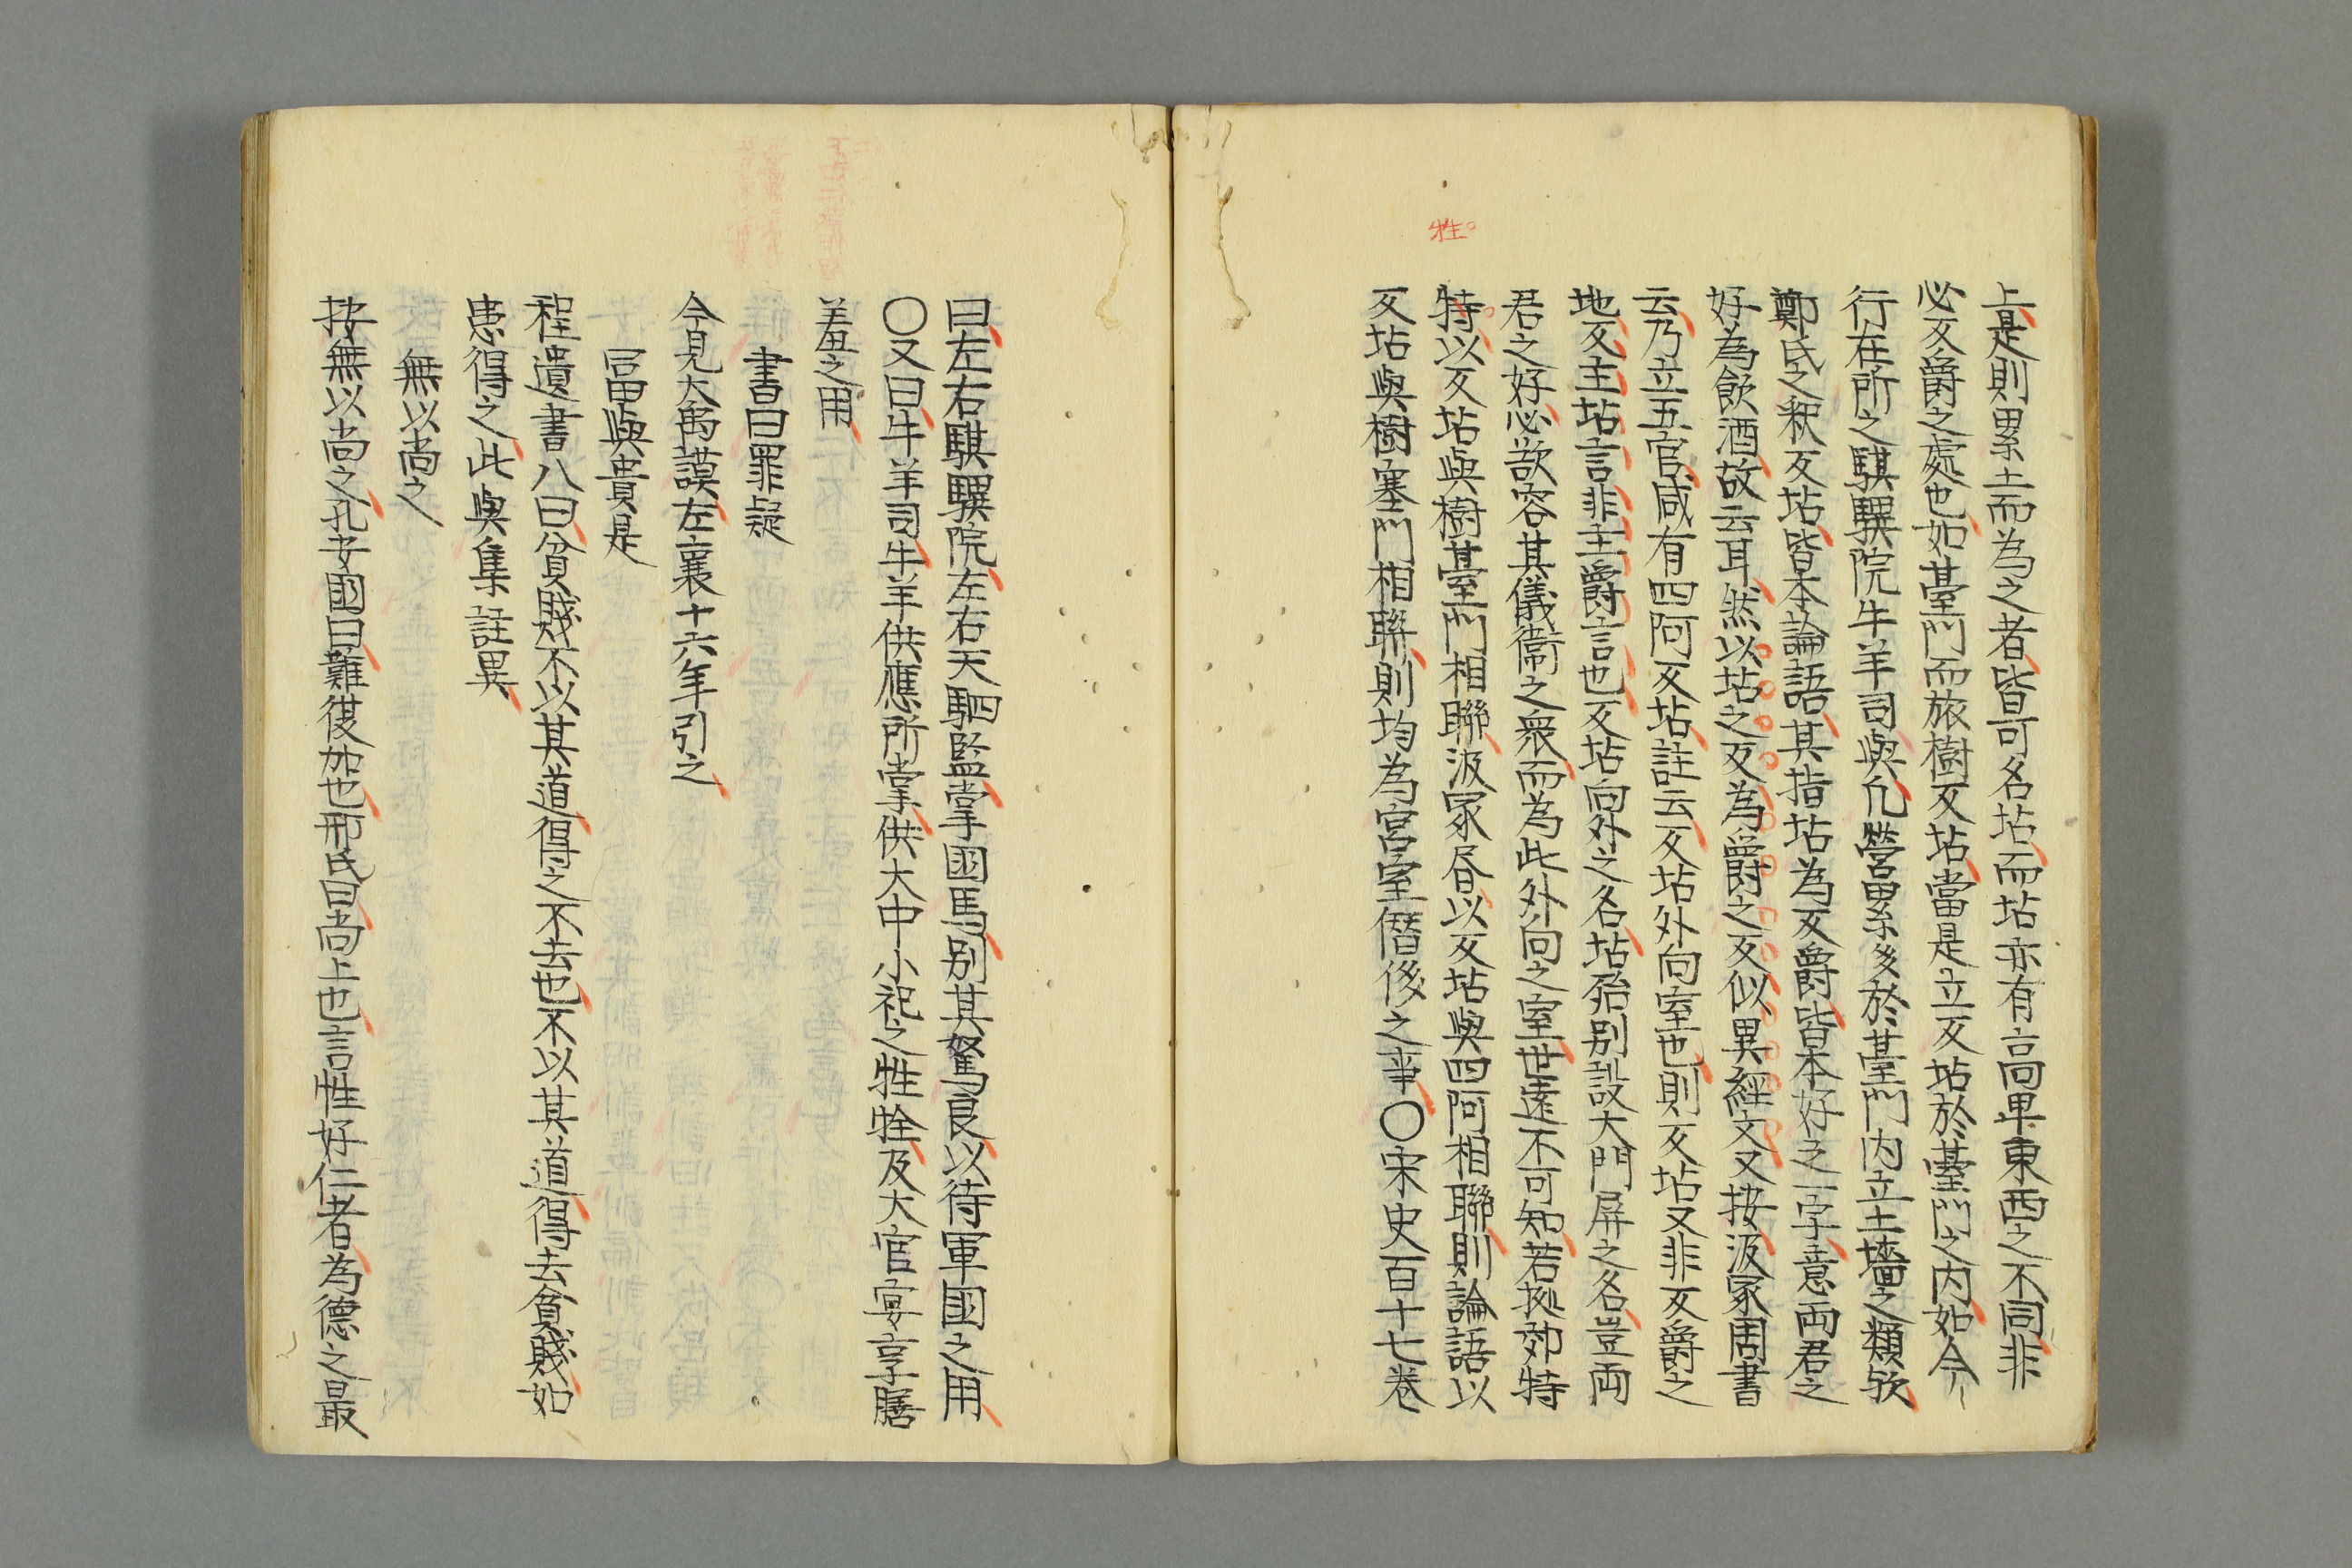 牲
上是則累土而為之者皆可名坫而坫亦有高卑東西之不同非
必反爵之處也如臺門而旅樹反坫當是立反坫於臺門之内如今
行在所之騏驥院牛羊司與凡營累多於臺門内立土墻之類欤
鄭氏之釈反坫皆本論語其指坫為反爵皆本好之一字意両君之
好為飲酒故云耳然以坫之反為爵之反似異經文又按汲冢周書
云乃立五官咸有四阿反坫註云反坫外向室也則反坫又非反爵之
地反主坫言非主爵言也反坫向外之名坫殆別設大門屏之名豈両
君之好必欲容其儀衛之衆而為此外向之室世遠不可知若挻郊特
特以反坫與樹臺門相聯汲冢昏以反坫與四阿相聯則論語以
反坫與樹塞門相聯則均為宮室僭侈之事〇宋史百十七卷
曰左右騏驥院左右天駟監掌国馬別其駑良以待軍國之用
〇又曰牛羊司牛羊供應所掌供大中小祀之牲牷及大官宴享膳
羞之用
書曰罪疑
今見大禹謨左襄十六年引之
冨與貴是
程遺書八曰貧賤不以其道得之不去也不以其道得去貧賤如
患得之此與集註異
無以尚之
按無以尚之孔安國曰難復加也邢氏曰尚上也言性好仁者為德之最